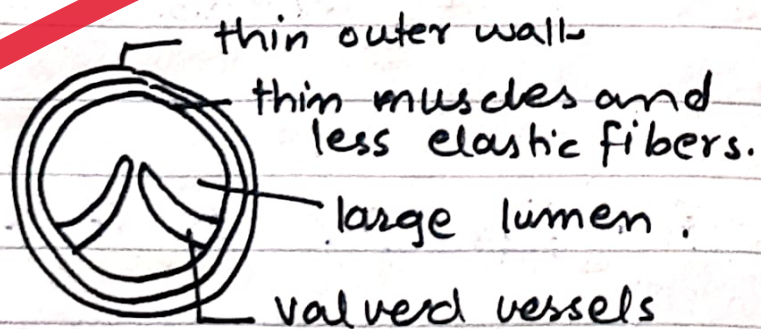 thin outer wall
thin muscles and
less elastic fibers.
large lumen.
valverd vessels